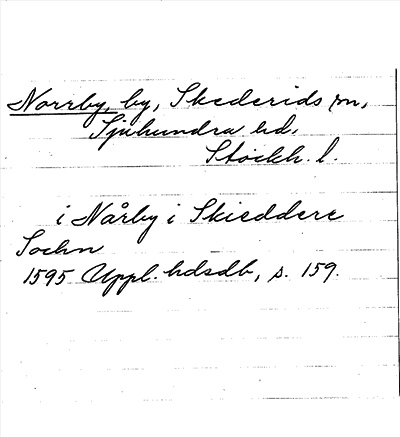 Norrby, by, Skederids sn,
Sjuhundra hd.
Stockh. l.
i Nårby i Skieddere
Sochn
1595 Uppl. hdsdb, s. 159.